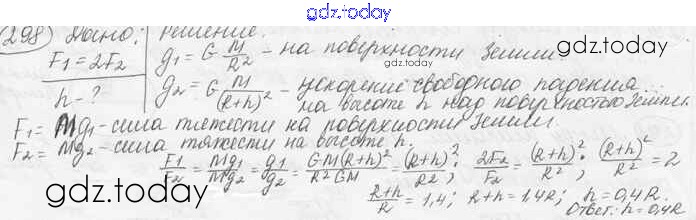 gdz.today
(298) Дано: Решение.
F₁ = 2F₂
h - ?
g₁ = G M/R² - на поверхности Земли.
gdz.today
g₂ = G M/(R+h)² - ускорение свободного падения
на высоте h над поверхностью Земли.
F₁ = Mg₁ - сила тяжести на поверхности Земли.
F₂ = Mg₂ - сила тяжести на высоте h.
F₁/F₂ = Mg₁/Mg₂ = g₁/g₂ = GM(R+h)²/R²GM = (R+h)²/R²; 2F₂/F₂ = (R+h)²/R²; (R+h)²/R² = 2
gdz.today
(R+h)/R = 1,4; R+h = 1,4R; h = 0,4R.
Ответ: h = 0,4R
gdz.today